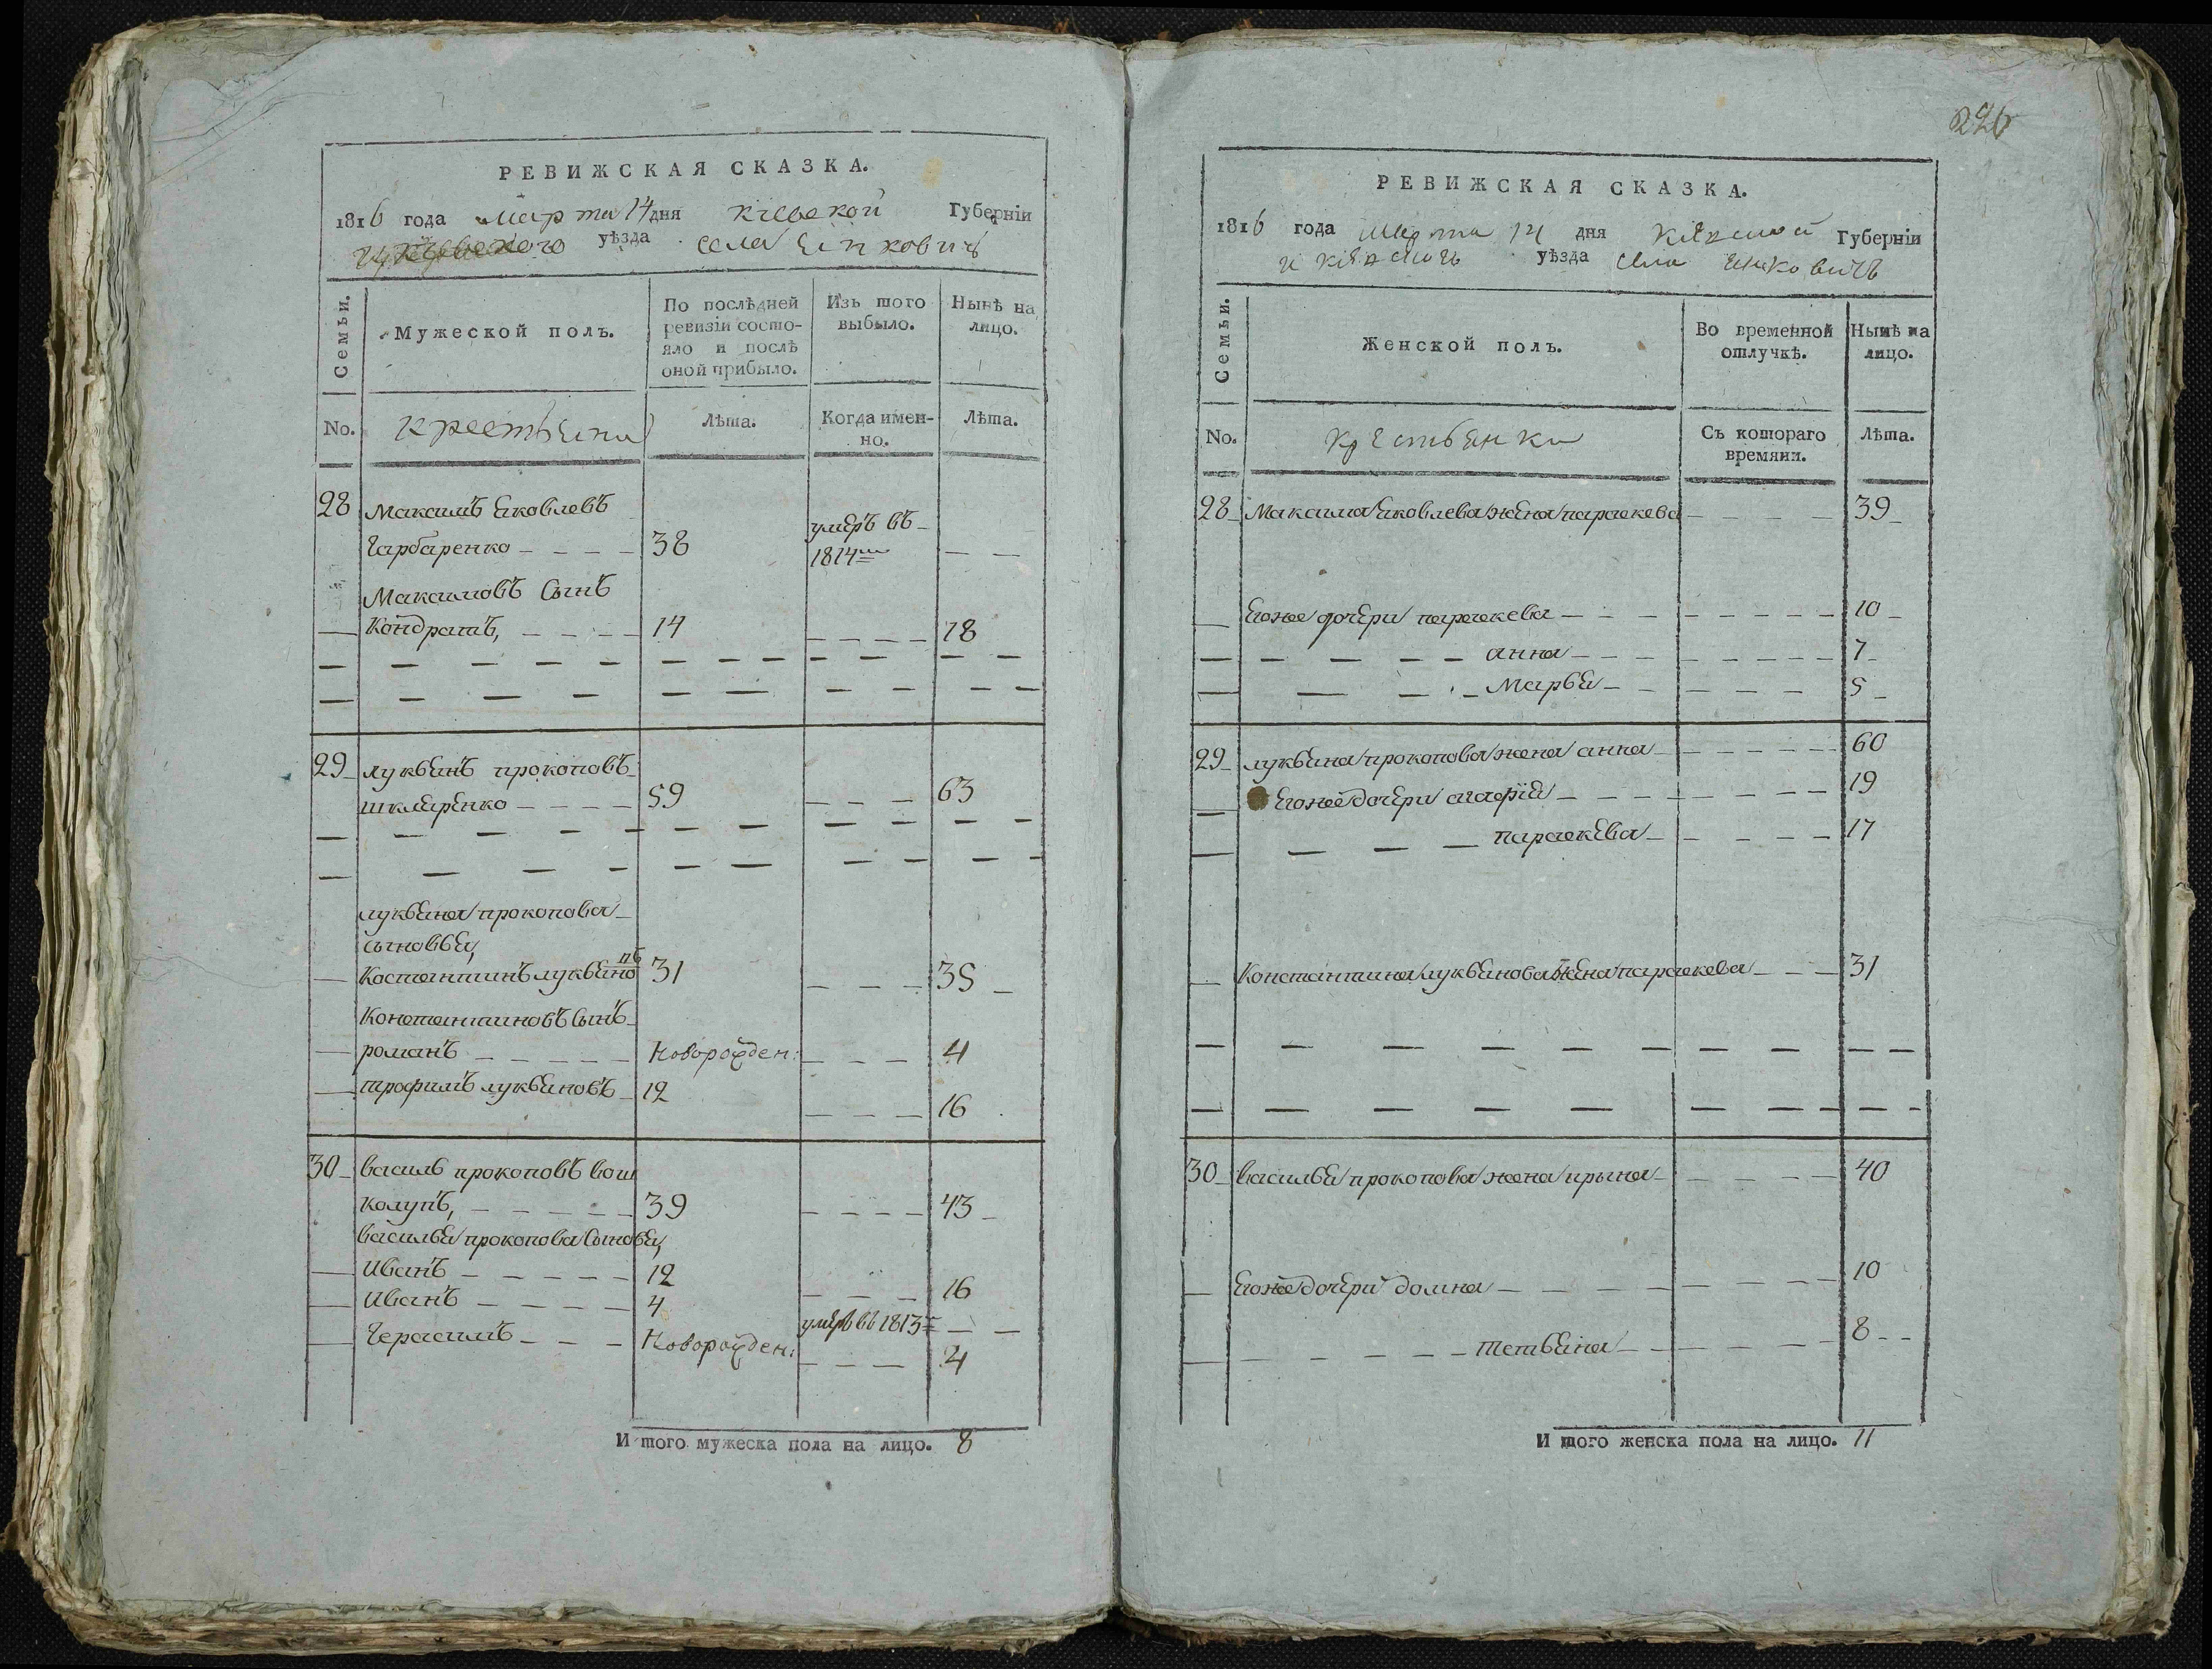 РЕВИЖСКАЯ СКАЗКА.
1816 года марта 14 дня Кіевской Губерніи
уѣзда села Янковичъ
Семьи.
Мужеской полъ.
По послѣдней ревизіи состояло и послѣ оной прибыло.
Изъ того выбыло.
Нынѣ на лицо.
No.
крестьяни
Лѣта.
Когда именно.
Лѣта.
28 Максимъ Яковлевъ
Гарбаренко 38 умеръ въ 1814
Максимовъ Сынъ
Кондратъ, 14 18
29 лукьянъ прокоповъ
шкляренко 59 63
лукьяна прокопова
сыновья,
Костянтинъ лукьяновъ 31 35
Констянтиновъ Сынъ
романъ Новорожден: 4
трофимъ лукьяновъ 12 16
30 василь прокоповъ вош
колупъ, 39 43
василья прокопова Сыновя,
Иванъ 12 16
Иванъ 4 умеръ въ 1813
Герасимъ Новорожден: 4
И того мужеска пола на лицо. 8
226
РЕВИЖСКАЯ СКАЗКА.
1816 года Марта 14 дня Кіевской Губерніи
и кіевского уѣзда Села Янковичъ
Семьи.
Женской полъ.
Во временной отлучкѣ.
Нынѣ на лицо.
No.
Крестьянки
Съ котораго времяни.
Лѣта.
28 Максима Яковлева жена параскева 39
Егоже дочери параскева 10
анна 7
Марья 5
29 лукьяна прокопова жена анна 60
Егоже дочери марія 19
параскева 17
Константина лукьянова жена параскева 31
30 василья прокопова жена ирына 40
Егоже дочери домна 10
тетьяна 8
И того женска пола на лицо. 11